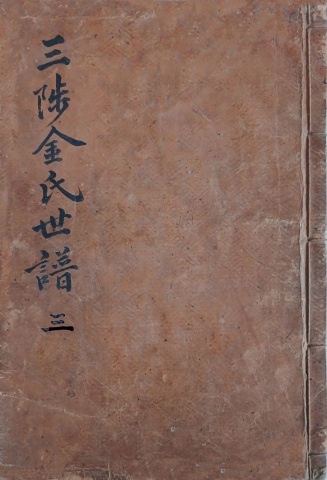 三陟金氏世譜 三